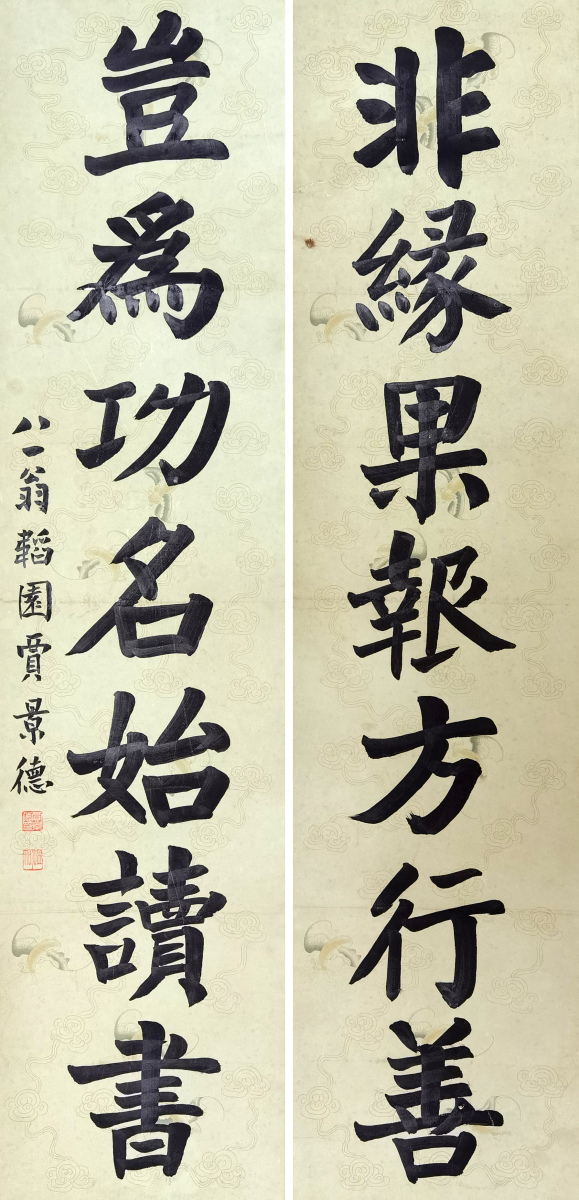 非緣果報方行善
豈為功名始讀書
八一翁韜園賈景德